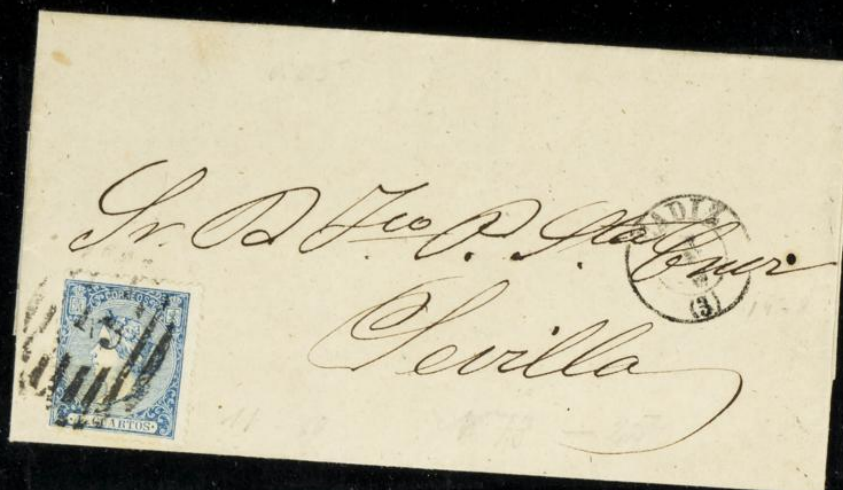 Sr. D. Fco P. Sta Cruz
Sevilla
CADIZ
(3)
CORREOS
4 CUARTOS